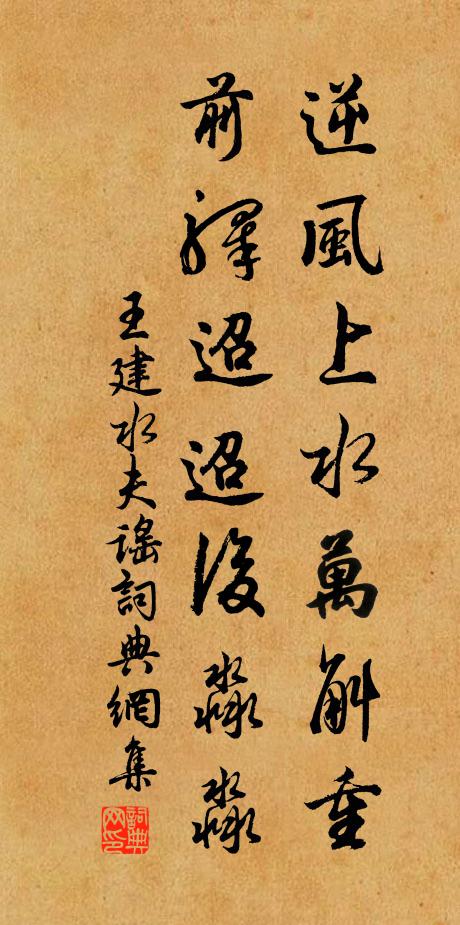 逆風上水萬斛重
前驛迢迢後淼淼
王建水夫謠詞典網集
詞典网印